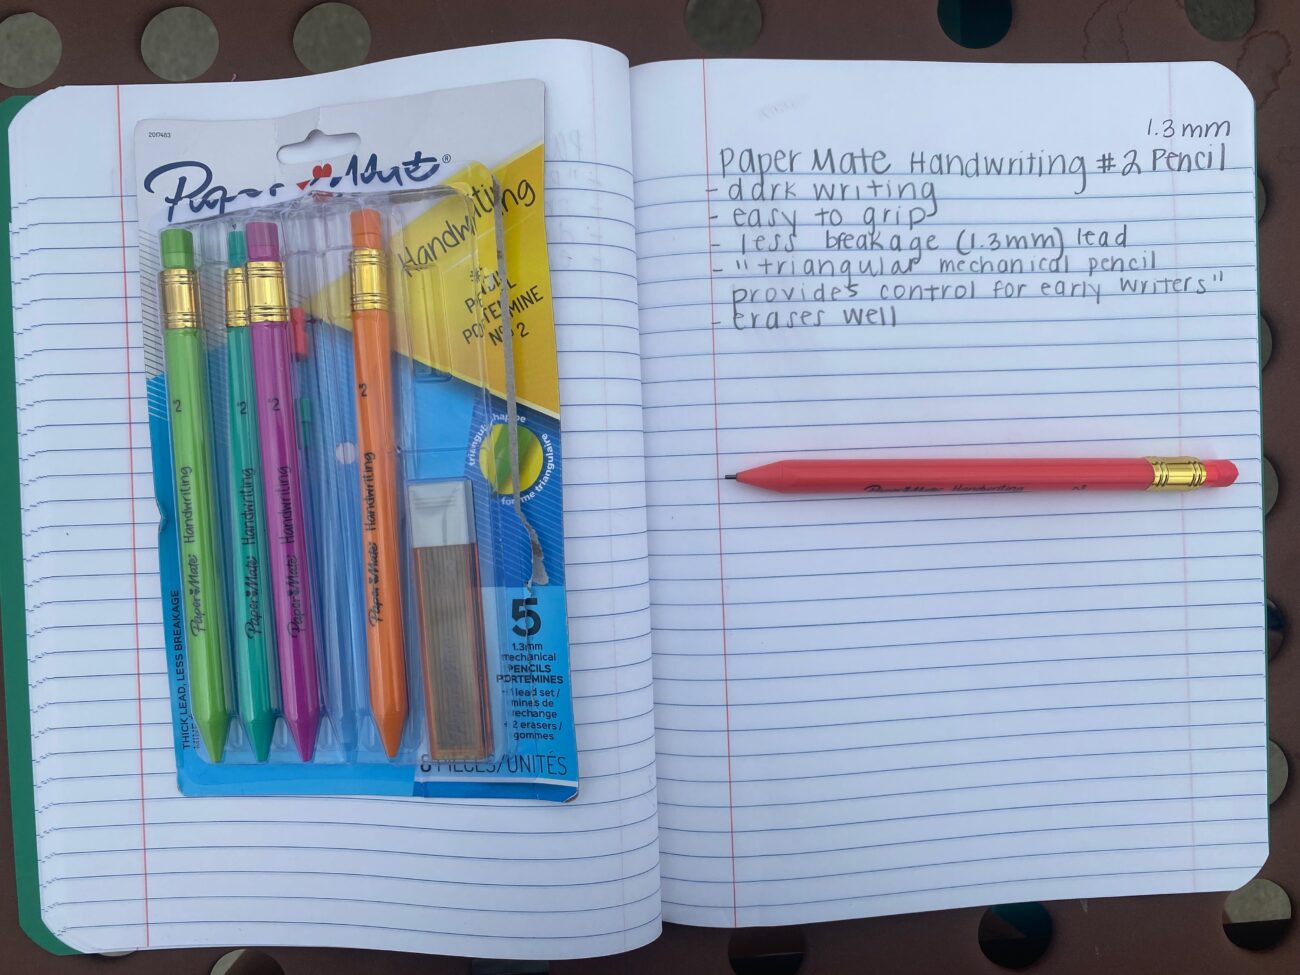 2017483
Paper Mate®
Handwriting
#2
PENCIL
PORTEMINE
No 2
triangular shape
forme triangulaire
2
2
2
2
Paper Mate Handwriting
Paper Mate Handwriting
Paper Mate Handwriting
Paper Mate Handwriting
THICK LEAD, LESS BREAKAGE
5
1.3mm
mechanical
PENCILS
PORTEMINES
+1 lead set /
mines de
rechange
+ 2 erasers /
gommes
8 PIECES/UNITÉS
1.3mm
Paper Mate Handwriting #2 Pencil
- dark writing
- easy to grip
- less breakage (1.3mm) lead
- "triangular mechanical pencil
provides control for early writers"
- erases well
Paper Mate Handwriting 2